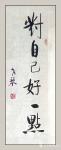 對自己好一點